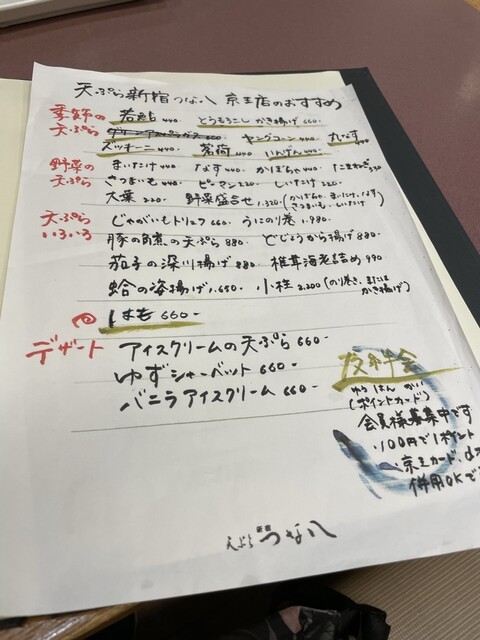 天ぷら新宿つな八 京王店のおすすめ
季節の 若鮎 440 とうもろこしかき揚げ 660-
天ぷら グリーンアスパラガス 550 ヤングコーン 440 丸なす 440
ズッキーニ 440 茗荷 440 いんげん 440
野菜の まいたけ 440 なす 440 かぼちゃ 440 たまねぎ 330
天ぷら さつまいも 440 ピーマン 220 しいたけ 220-
大葉 220 野菜盛合せ 1.320 (かぼちゃ、まいたけ、なす
さつまいも、しいたけ)
天ぷら じゃがいもトリュフ 660 うにのり巻 1.980-
いろいろ 豚の角煮の天ぷら 880 どじょうから揚げ 880-
茄子の深川揚げ 880 椎茸海老詰め 990
蛤の海揚げ 1.650- 小柱 2.200 (のり巻き、または
かき揚げ)
はも 660-
デザート アイスクリームの天ぷら 660-
ゆずシャーベット 660-
バニラアイスクリーム 660-
友絆会
ゆう はん かい
(ポイントカード)
会員様募集中です
・100円で1ポイント
・京王カード、d
併用OKで
新宿
天ぷら つな八